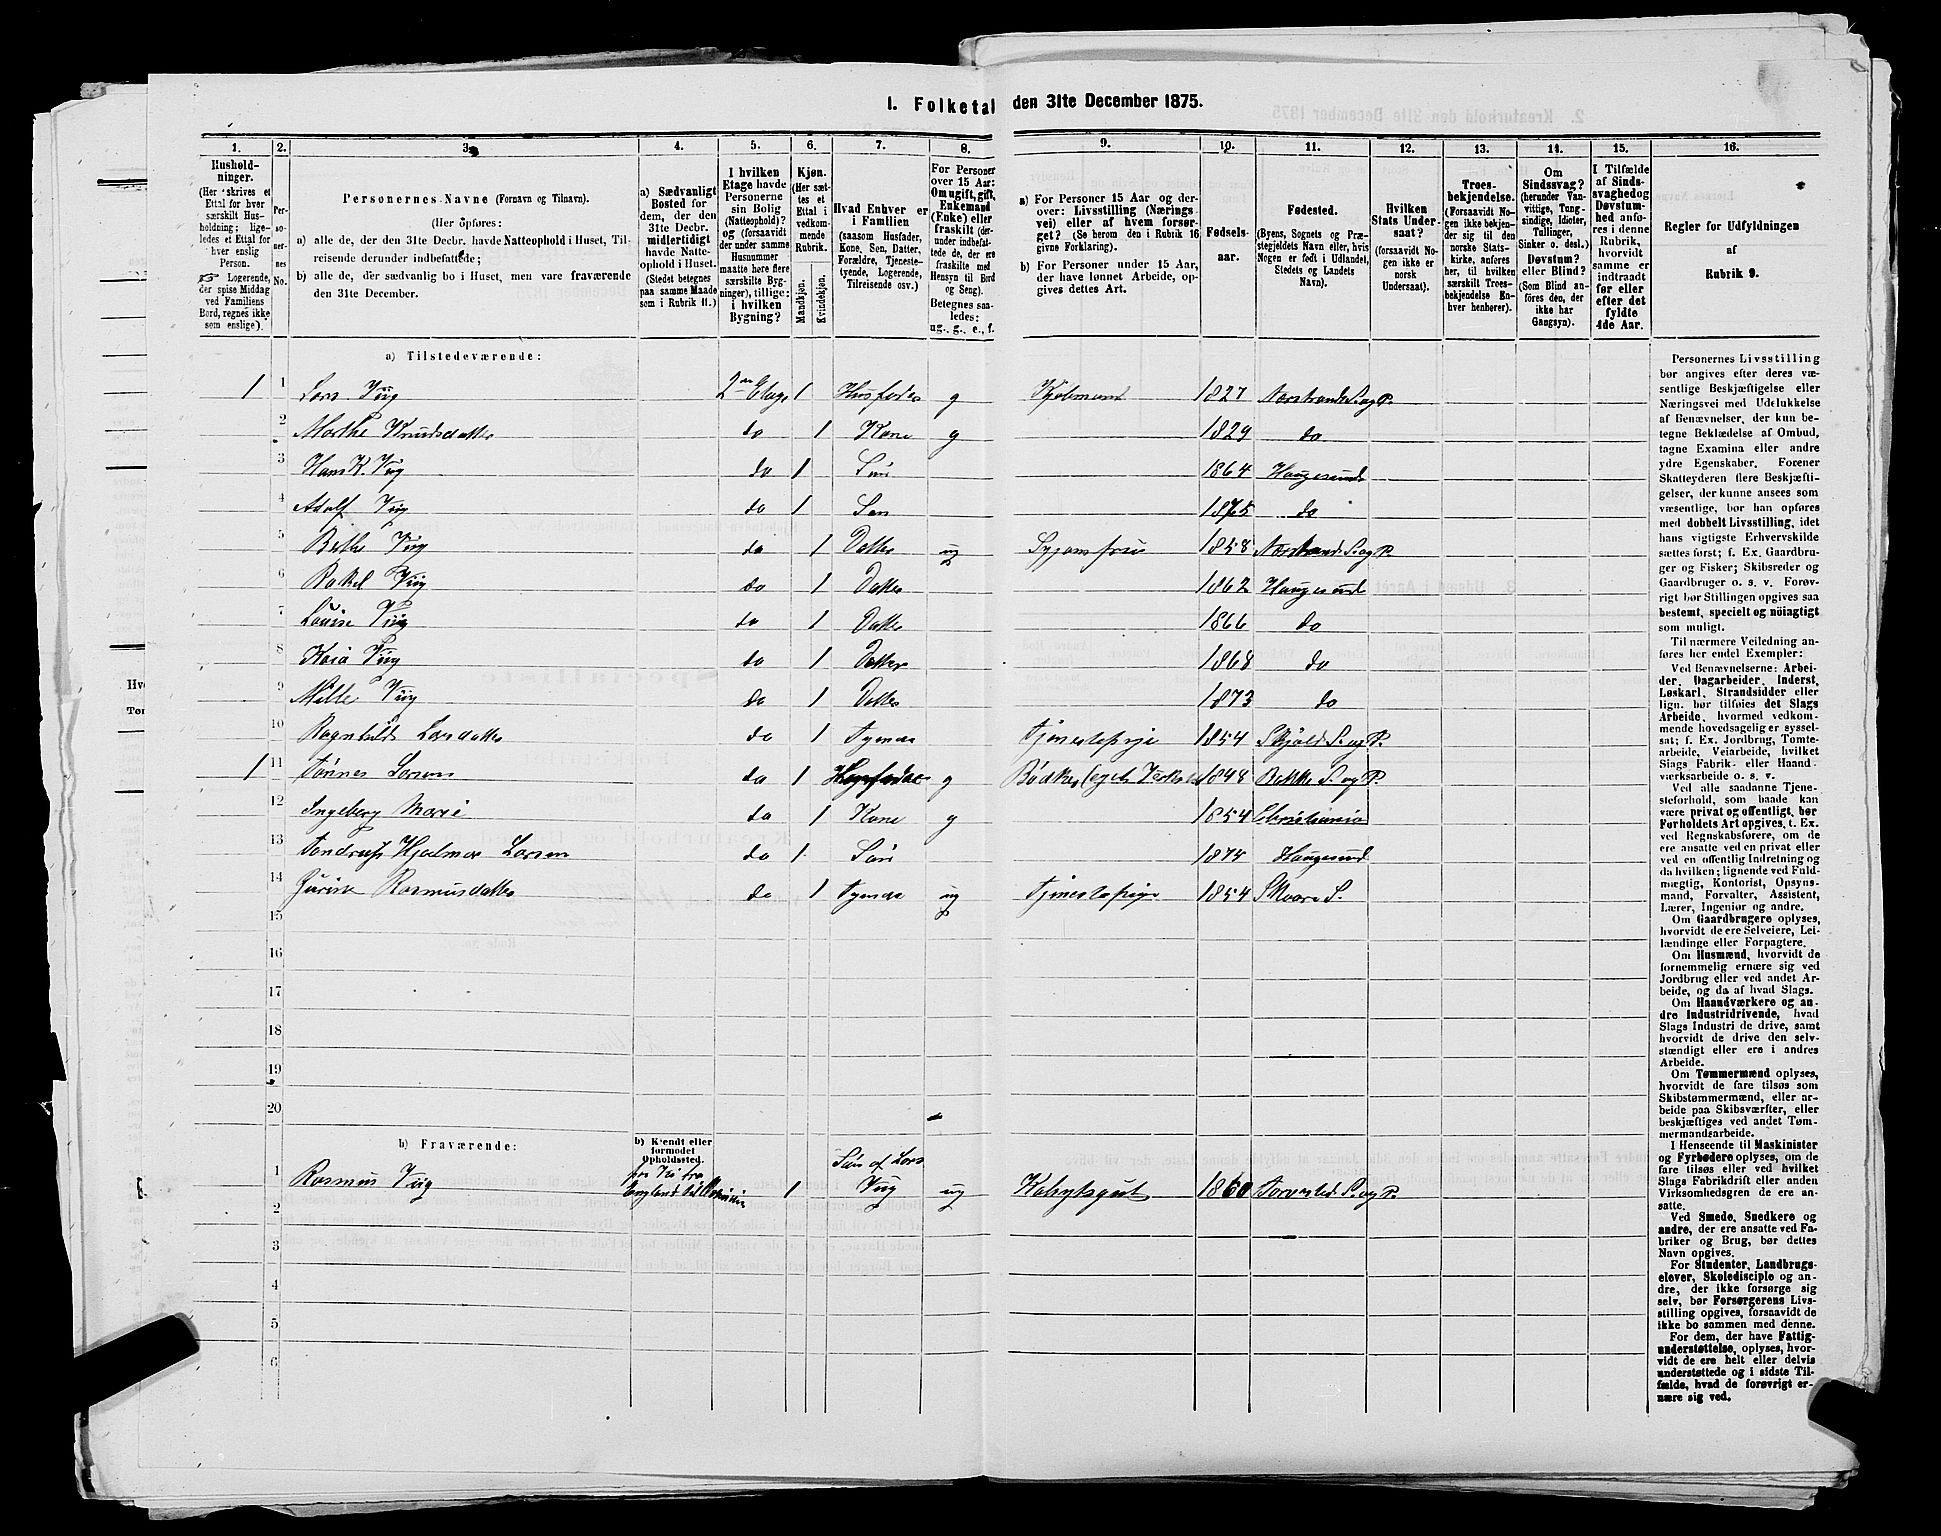 1. Folketal den 31te December 1875.
1. 2. 3. 4. 5. 6. 7. 8. 9. 10. 11. 12. 13. 14. 15. 16.
Hushold-
ninger.
(Her skrives et
Ettal for hver
særskilt Hus-
holdning; lige-
ledes et Ettal for
hver enslig
Person.
☞ Logerende,
der spise Middag
ved Familiens
Bord, regnes ikke
som enslige).
Per-
so-
ner-
nes
No.
Personernes Navne (Fornavn og Tilnavn).
(Her opføres:
a) alle de, der den 31te Decbr. havde Natteophold i Huset, Til-
reisende derunder indbefattede;
b) alle de, der sædvanlig bo i Huset, men vare fraværende
den 31te December.
a) Sædvanligt
Bosted for
dem, der den
31te Decbr.
midlertidigt
havde Natte-
ophold i Huset.
(Stedet betegnes
paa samme Maade
som i Rubrik 11.)
I hvilken
Etage havde
Personerne
sin Bolig
(Natteophold)?
og (forsaavidt
der under samme
Husnummer
maatte høre flere
særskilte Byg-
ninger), tillige:
i hvilken
Bygning?
Kjøn.
(Her sæt-
tes et
Ettal i
vedkom-
mende
Rubrik.
Mandkjøn.
Kvindekjøn.
Hvad Enhver er
i Familien
(saasom Husfader,
Kone, Søn, Datter,
Forældre, Tjeneste-
tyende, Logerende,
Tilreisende osv.)
For Personer
over 15 Aar:
Om ugift, gift,
Enkemand
(Enke) eller
fraskilt (der-
under indbefat-
tede de, der ere
fraskilte med
Hensyn til Bord
og Seng).
Betegnes saa-
ledes:
ug., g., e., f.
a) For Personer 15 Aar og der-
over: Livsstilling (Nærings-
vei) eller af hvem forsør-
get? (Se herom den i Rubrik 16
givne Forklaring).
b) For Personer under 15 Aar,
der have lønnet Arbeide, op-
gives dettes Art.
Fødsels-
aar.
Fødested.
(Byens, Sognets og Præ-
stegjeldets Navn eller, hvis
Nogen er født i Udlandet,
Stedets og Landets
Navn).
Hvilken
Stats Under-
saat?
(forsaavidt No-
gen ikke er
norsk
Undersaat).
Troes-
bekjendelse.
(Forsaavidt No-
gen ikke bekjen-
der sig til den
norske Stats-
kirke, anføres
her, til hvilken
særskilt Troes-
bekjendelse En-
hver henhører).
Om
Sindssvag?
(herunder Van-
vittige, Tung-
sindige, Idioter,
Tullinger,
Sinker o. desl.)
Døvstum?
eller Blind?
(Som Blind an-
føres den, der
ikke har
Gangsyn).
I Tilfælde
af Sinds-
svaghed og
Døvstum-
hed anfø-
res i denne
Rubrik,
hvorvidt
samme er
indtraadt
før eller
efter det
fyldte
4de Aar.
Regler for Udfyldningen
af
Rubrik 9.
a) Tilstedeværende:
1 1 Lars Viig 2den Etage 1 Husfader g Kjøbmand 1827 Nærstrand S. og P.
2 Marthe Knudsdatter do 1 Kone g 1829 do
3 Hans K. Viig do 1 Søn 1864 Haugesund
4 Adolf Viig do 1 Søn 1875 do
5 Berthe Viig do 1 Datter ug 1858 Nærstrand S. og P.
6 Rakel Viig do 1 Datter 1862 Haugesund
7 Louise Viig do 1 Datter 1866 do
8 Kaia Viig do 1 Datter 1868 do
9 Mille Viig do 1 Datter 1873 do
10 Ragnhild Larsdatter do 1 Tyende Tjenestepige 1854 Skjold S. og P.
1 11 Tønnes Larsen do 1 Husfader g Bødker (eget 1848 Bakke S. og P.
12 Ingeborg Marie do 1 Kone g 1854 Christiania
13 Hjalmar Larsen do 1 Søn 1875 Haugesund
14 Rasmusdatter do 1 Tyende ug Tjenestepige 1854 Skaare S.
15
16
17
18
19
20
b) Fraværende:
b) Kjendt eller
formodet
Opholdssted.
1 Rasmus Viig 1 Søn af Lars Viig ug Kahytsgut 1860 Torvestad S. og P.
2
3
4
5
6
Personernes Livsstilling
bør angives efter deres væ-
sentlige Beskjæftigelse eller
Næringsvei med Udelukkelse
af Benævnelser, der kun be-
tegne Beklædelse af Ombud,
tagne Examina eller andre
ydre Egenskaber. Forener
Skatteyderen flere Beskjæfti-
gelser, der kunne ansees som
væsentlige, bør han opføres
med dobbelt Livsstilling, idet
hans vigtigste Erhvervskilde
sættes først; f. Ex. Gaardbru-
ger og Fisker; Skibsreder og
Gaardbruger o. s. v. Forøv-
rigt bør Stillingen opgives saa
bestemt, specielt og nöiagtigt
som muligt.
Til nærmere Veiledning an-
føres her endel Exempler:
Ved Benævnelserne: Arbei-
der, Dagarbeider, Inderst,
Løskarl, Strandsidder eller
lign. bør tilføies det Slags
Arbeide, hvormed vedkom-
mende hovedsagelig er syssel-
sat; f. Ex. Jordbrug, Tomte-
arbeide, Veiarbeide, hvilket
Slags Fabrik- eller Haand-
værksarbeide o. s. v.
Ved alle saadanne Tjene-
steforhold, som baade kan
være privat og offentligt, bør
Forholdets Art opgives, f. Ex.
ved Regnskabsførere, om de
ere ansatte ved en privat eller
ved en offentlig Indretning og
da hvilken; lignende ved Fuld-
mægtig, Kontorist, Opsyns-
mand, Forvalter, Assistent,
Lærer, Ingeniør og andre.
Om Gaardbrugere oplyses,
hvorvidt de ere Selveiere, Lei-
lændinge eller Forpagtere.
Om Husmænd, hvorvidt de
fornemmelig ernære sig ved
Jordbrug eller ved andet Ar-
beide, og da af hvad Slags.
Om Haandværkere og an-
dre Industridrivende, hvad
Slags Industri de drive, samt
hvorvidt de drive den selv-
stændigt eller ere i andres
Arbeide.
Om Tømmermænd oplyses,
hvorvidt de fare tilsøs som
Skibstømmermænd, eller ar-
beide paa Skibsværfter, eller
beskjæftiges ved andet Tøm-
mermandsarbeide.
I Henseende til Maskinister
og Fyrbødere oplyses, om de
fare tilsøs eller ved hvilket
Slags Fabrikdrift eller anden
Virksomhedsgren de ere an-
satte.
Ved Smede, Snedkere og
andre, der ere ansatte ved Fa-
briker og Brug, bør dettes
Navn opgives.
For Studenter, Landbrugs-
elever, Skoledisciple og an-
dre, der ikke forsørge sig
selv, bør Forsørgerens Livs-
stilling opgives, forsaavidt de
ikke bo sammen med denne.
For dem, der have Fattig-
understøttelse, oplyses, hvor-
vidt de ere helt eller delvis
understøttede og i sidste Til-
fælde, hvad de forøvrigt er-
nære sig ved.